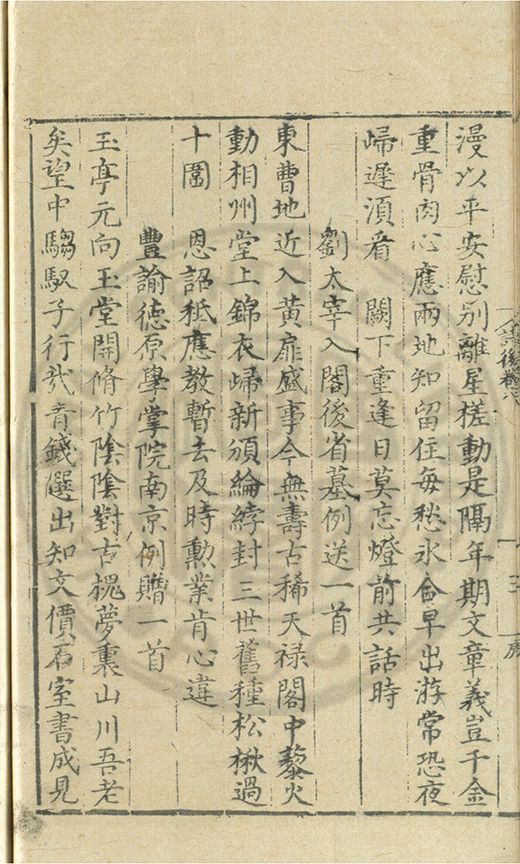 漫以平安慰别離星槎動是隔年期文章義豈千金
重骨肉心應兩地知留住每愁氷合早出游常恐夜
㱕遲須看　闕下重逢日莫忘燈前共話時
劉太宰入閣後省墓例送一首
東曹地近入黄扉盛事今無壽古稀天禄閣中藜火
動相州堂上錦衣㱕新頒綸綍封三世舊種松楸過
十圍　恩詔秪應教暫去及時勲業肯心違
豐諭徳原學掌院南京例贈一首
玉亭元向玉堂開脩竹陰陰對古槐夢裏山川吾老
矣望中騶馭子行哉青錢選出知文價石室書成見